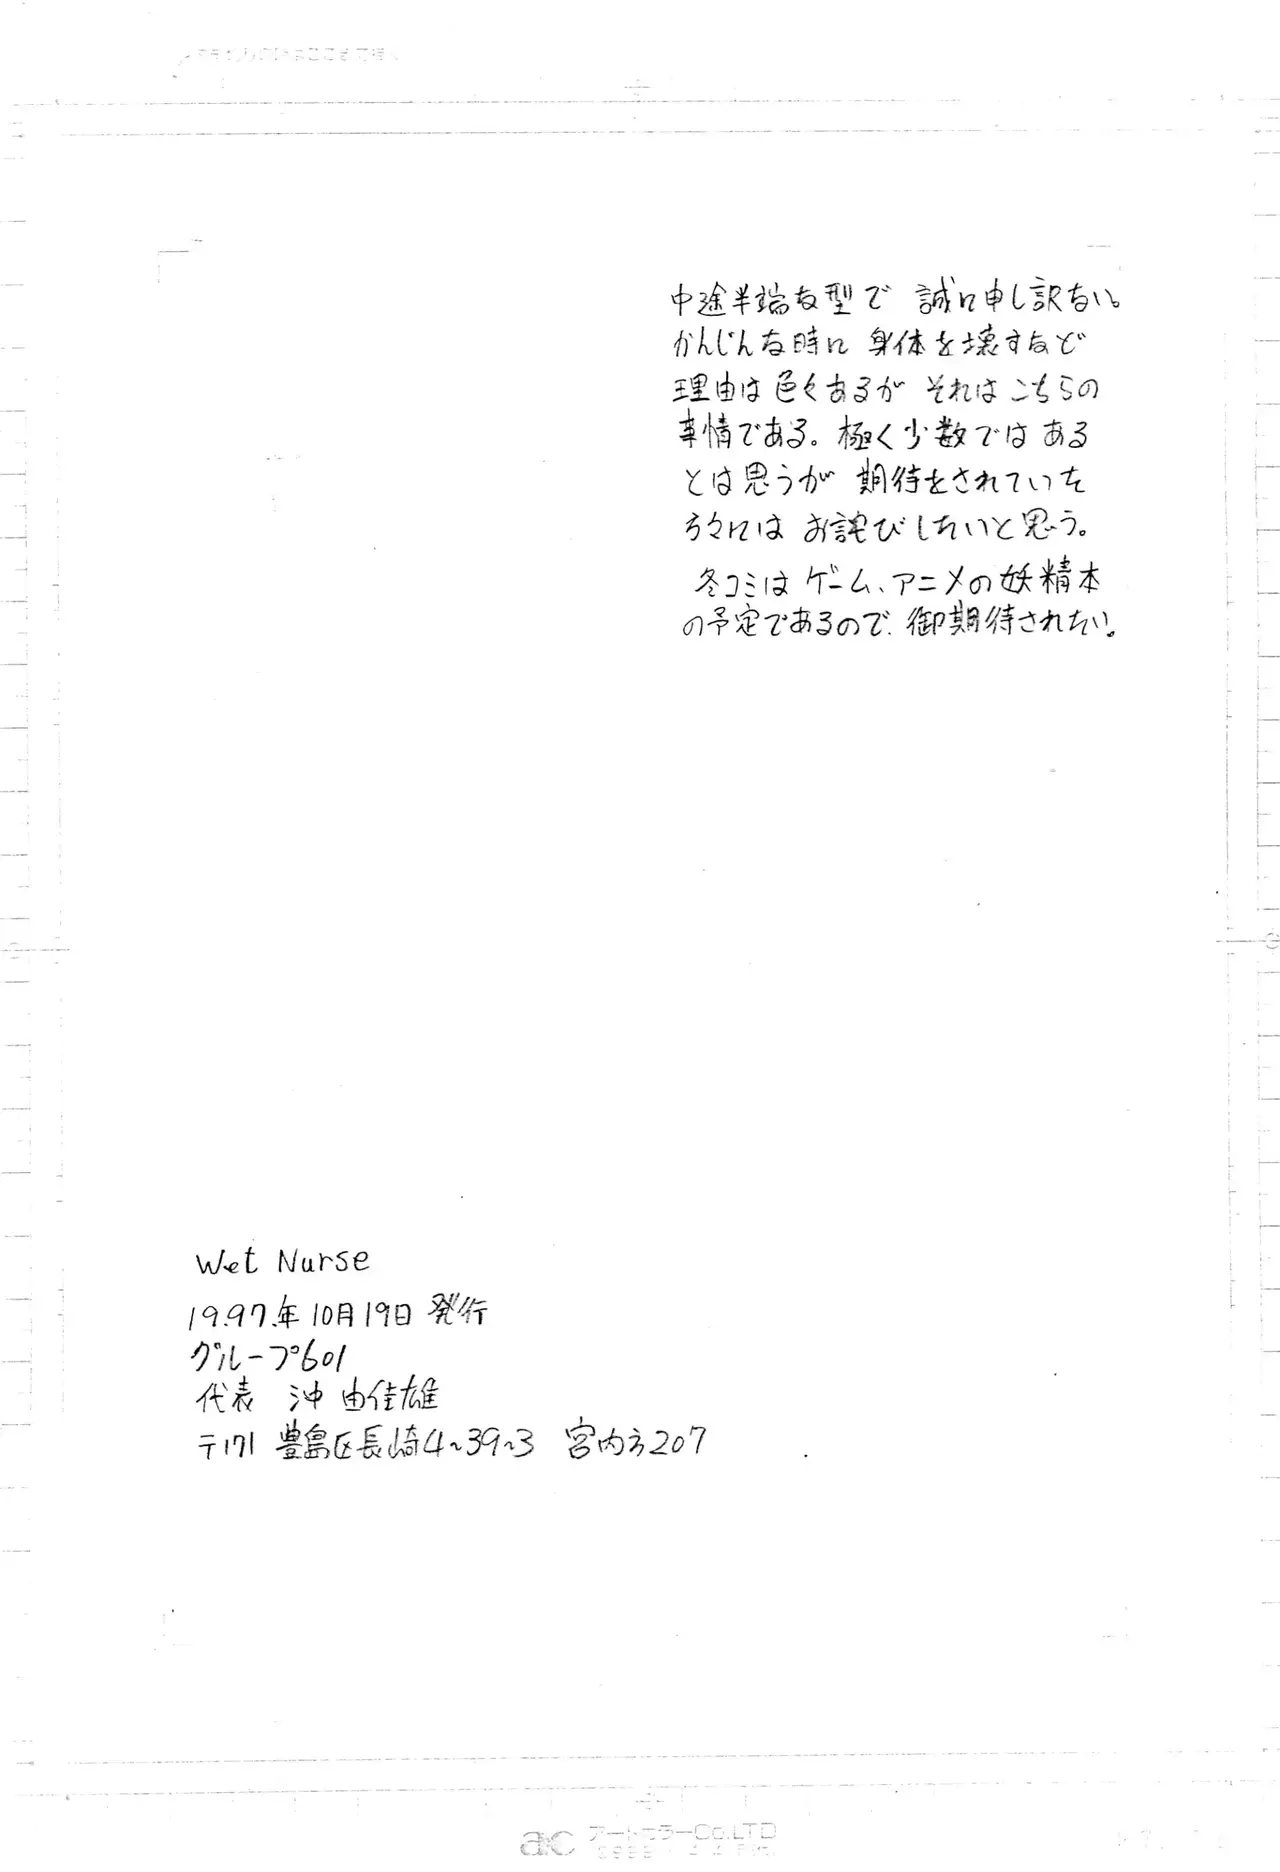 中途半端な型で 誠に申し訳ない。
かんじんな時に 身体を壊すなど
理由は色々あるが それはこちらの
事情である。極く少数ではある
とは思うが 期待をされていた
方々には お詫びしたいと思う。
冬コミは ゲーム、アニメの妖精本
の予定であるので、御期待されたい。
Wet Nurse
1997.年10月19日発行
グループ601
代表 沖 由佳雄
〒171 豊島区長崎4~39~3 宮内方207
アートカラーCo.LTD